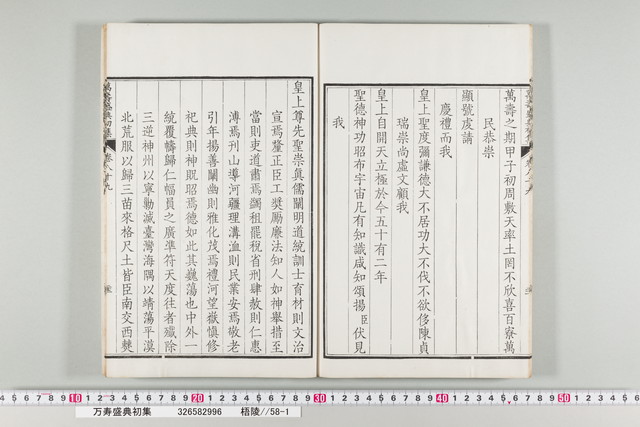 萬壽之期甲子初周敷天率土罔不欣喜百寮萬
民恭崇
顯號虔請
慶禮而我
皇上聖度彌謙德大不居功大不伐不欲侈陳貞
瑞崇尚虛文顧我
皇上自開天立極於今五十有二年
聖德神功昭布宇宙凡有知識咸知頌揚臣伏見
我
皇上尊先聖崇眞儒闡明道統訓士育材則文治
宣焉釐正臣工奬勵廉法知人如神舉措至
當則吏道肅焉蠲租罷稅省刑肆赦則仁惠
溥焉刋山導河疆理溝洫則民業安焉敬老
引年揚善闡幽則雅化茂焉禮河望嶽愼修
祀典則神旣昭焉德如此其巍蕩也中外一
統覆幬歸仁幅員之廣準符天度往者殲除
三逆神州以寧勦滅臺灣海隅以靖蕩平漠
北荒服以歸三苗來格尺土皆臣南交西僰
萬壽盛典初集
10 20 30 40 50
万寿盛典初集 326582996 梧陵//58-1